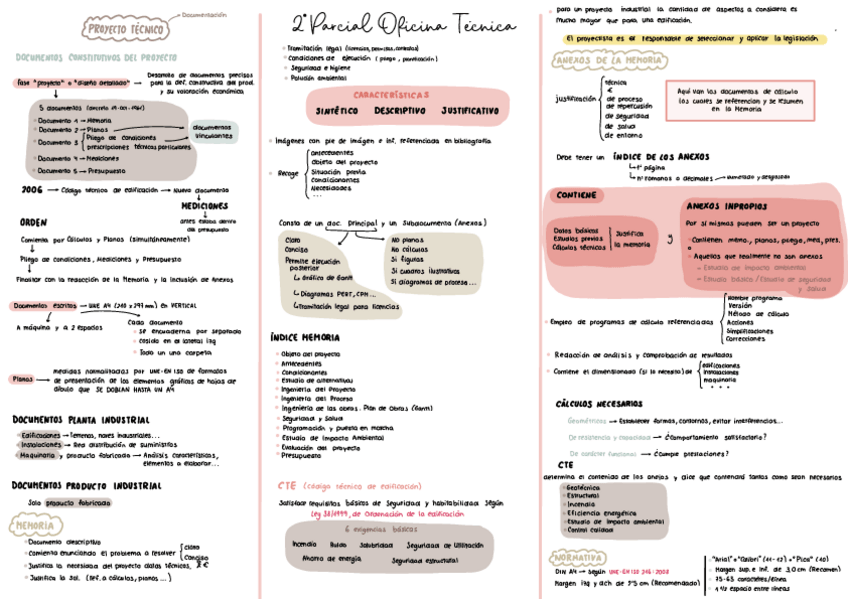 PROYECTO TÉCNICO
Documentación
DOCUMENTOS CONSTITUTIVOS DEL PROYECTO
Fase "proyecto" o "diseño detallado" → Desarrollo de documentos precisos
para la def. constructiva del prod.
y su valoración económica.
5 documentos
Documento 1 → Memoria
Documento 2 → Planos
Documento 3 Pliego de condiciones
prescripciones técnicas particulares
Documento 4 → Mediciones
Documento 5 → Presupuesto
documentos
vinculantes
2006 → Código técnico de edificación → Nuevo documento
MEDICIONES
antes estaba dentro
del presupuesto
ORDEN
Comienza por Cálculos y Planos (simultáneamente)
Pliego de condiciones, Mediciones y Presupuesto
Finalizar con la redacción de la Memoria y la inclusión de Anexos
Documentos escritos → UNE A4 (210 x 297 mm) en VERTICAL
A máquina y a 2 espacios
Cada documento
Se encuaderna por separado
Cosido en el lateral izq
Todo en una carpeta
Planos → medidas normalizadas por UNE-EN ISO de formatos
de presentación de los elementos gráficos de hojas de
dibujo que SE DOBLAN HASTA UN A4
DOCUMENTOS PLANTA INDUSTRIAL
Edificaciones → Terrenos, naves industriales...
Instalaciones → Red distribución de suministros
Maquinaria y producto fabricado → Análisis características,
elementos a elaborar...
DOCUMENTOS PRODUCTO INDUSTRIAL
Solo producto fabricado
MEMORIA
Documento descriptivo
Comienza enunciando el problema a resolver
Claro
Conciso
Justifica la necesidad del proyecto datos técnicos, €
Justifica la sol. (ref. a cálculos, planos...)
2º Parcial Oficina Técnica
Tramitación legal (licencias, permisos, contratos)
Condiciones de ejecución (pliego, planificación)
Seguridad e higiene
Polución ambiental
CARACTERÍSTICAS
SINTÉTICO DESCRIPTIVO JUSTIFICATIVO
Imágenes con pie de imagen e inf. referenciada en bibliografía
Recoge
Antecedentes
Objeto del proyecto
Situación previa
Condicionantes
Necesidades
...
Consta de un doc. Principal y un Subdocumento (Anexos)
Claro
Conciso
Permite ejecución
posterior
Gráfico de Gantt
Diagramas PERT, CPM...
Tramitación legal para licencias
No planos
No cálculos
Sí figuras
Sí cuadros ilustrativos
Sí diagramas de proceso...
ÍNDICE MEMORIA
Objeto del proyecto
Antecedentes
Condicionantes
Estudio de alternativas
Ingeniería del Proyecto
Ingeniería del Proceso
Ingeniería de las obras. Plan de Obras (Gantt)
Seguridad y Salud
Programación y puesta en marcha
Estudio de Impacto Ambiental
Evaluación del proyecto
Presupuesto
CTE (Código técnico de edificación)
Satisfacer requisitos básicos de Seguridad y habitabilidad según
Ley 38/1999, de Ordenación de la edificación
6 exigencias básicas
Incendio Ruido Salubridad Seguridad de Utilización
Ahorro de energía Seguridad estructural
para un proyecto industrial la cantidad de aspectos a considerar es
mucho mayor que para una edificación.
El proyectista es el responsable de seleccionar y aplicar la legislación
ANEXOS DE LA MEMORIA
justificación
técnica
€
de proceso
de repercusión
de seguridad
de salud
de entorno
Aquí van los documentos de cálculo
los cuales se referencian y se resumen
en la Memoria
Debe tener un ÍNDICE DE LOS ANEXOS
1ª página
nº romanos o decimales →
CONTIENE
Datos básicos
Estudios previos
Cálculos técnicos
Justifica
la memoria
y
ANEXOS IMPROPIOS
Por sí mismos pueden ser un proyecto
Contienen memo., planos, pliego, med., pres.
Aquellos que realmente no son anexos
Estudio de impacto ambiental
Estudio básico / Estudio de Seguridad
y Salud
Empleo de programas de cálculo referenciados
Nombre programa
Versión
Método de cálculo
Acciones
Simplificaciones
Correcciones
Redacción de análisis y comprobación de resultados
Contiene el dimensionado (si lo necesita) de
edificaciones
instalaciones
maquinaria
...
CÁLCULOS NECESARIOS
Geométricos → Establecer formas, contornos, evitar interferencias...
De resistencia y capacidad → ¿Comportamiento satisfactorio?
De carácter funcional → ¿Cumple prestaciones?
CTE
determina el contenido de los anejos y dice que contendrá tantos como sean necesarios
Geotécnica
Estructural
Incendio
Eficiencia energética
Estudio de impacto ambiental
Control calidad
NORMATIVA
DIN A4 → Según UNE-EN ISO 216:2008
Margen izq y dch de 2'5 cm (Recomendado)
"Arial" o "Calibri" (11-12) → "Pica" (10)
Margen sup. e inf. de 3,0 cm (Recomen)
75-65 carácteres/línea
1 1/2 espacio entre líneas